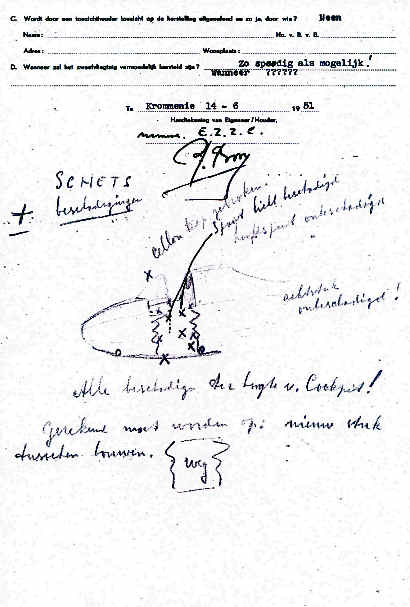 C. Wordt door een toezichthouder toezicht op de herstelling uitgeoefend en zo ja, door wie? Neen
Naam: No. v. B. v. B.
Adres: Woonplaats:
D. Wanneer zal het zweefvliegtuig vermoedelijk hersteld zijn? Zo spoedig als mogelijk!
Wanneer ??????
Te Krommenie 14 - 6 1951
Handtekening van Eigenaar/Houder,
namens. E.Z.Z.C.
SCHETS
+ beschadigingen
cellon kap gebroken.
Spant licht beschadigd
hoofdspant onbeschadigd
achterstuk
onbeschadigd!
Alle beschadigingen ter hoogte v. Cockpit!
Gerekend moet worden op: nieuw stuk
tussenbouwen.
weg